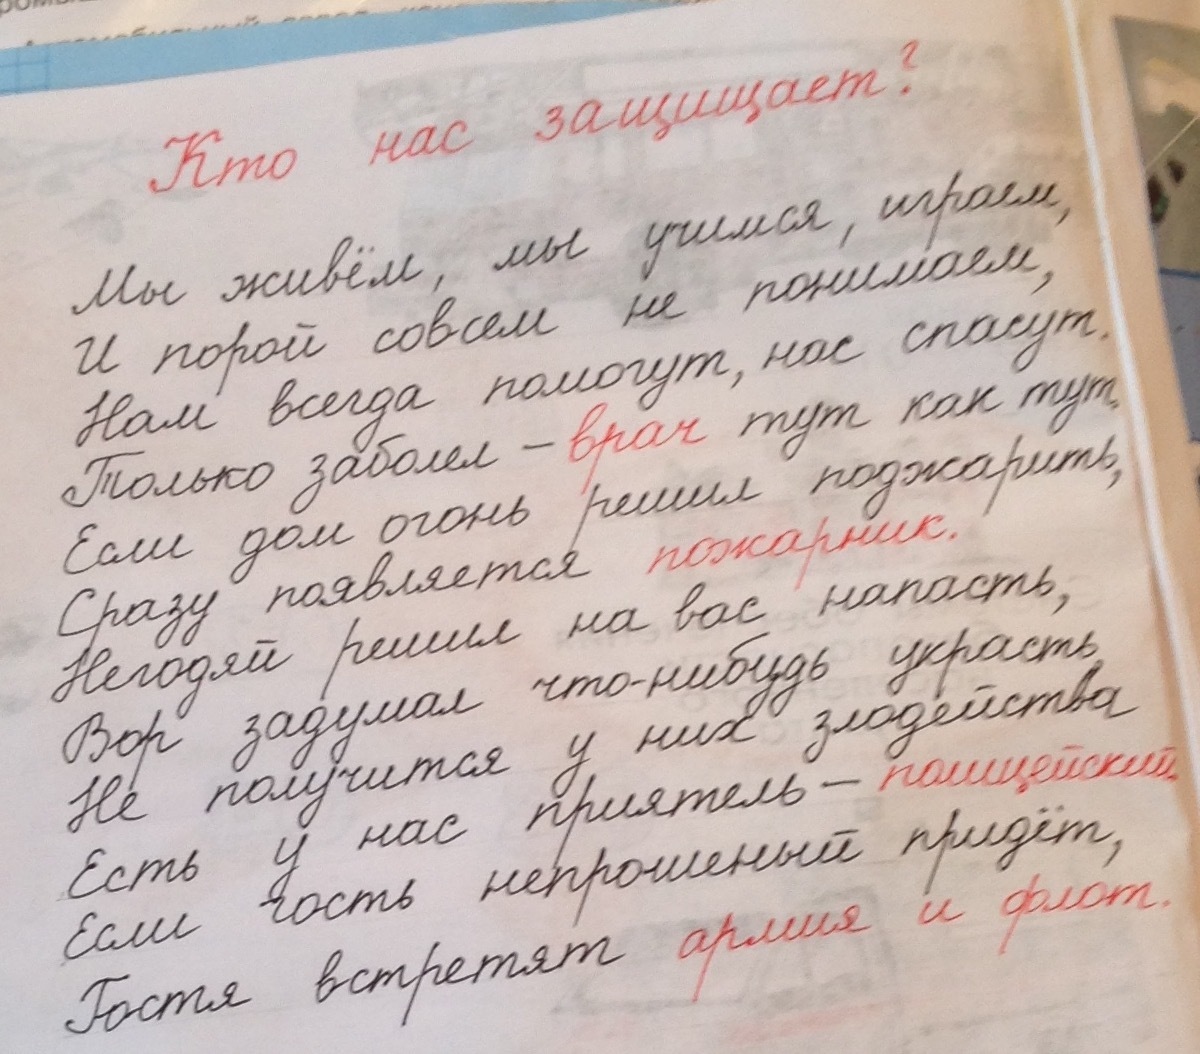 Кто нас защищает?
Мы живём, мы учимся, играем,
И порой совсем не понимаем,
Нам всегда помогут, нас спасут.
Только заболел - врач тут как тут.
Если дом огонь решил поджарить,
Сразу появляется пожарник.
Негодяй решил на вас напасть,
Вор задумал что-нибудь украсть
Не получится у них злодейства
Есть у нас приятель - полицейский.
Если гость непрошеный придёт,
Гостя встретят армия и флот.